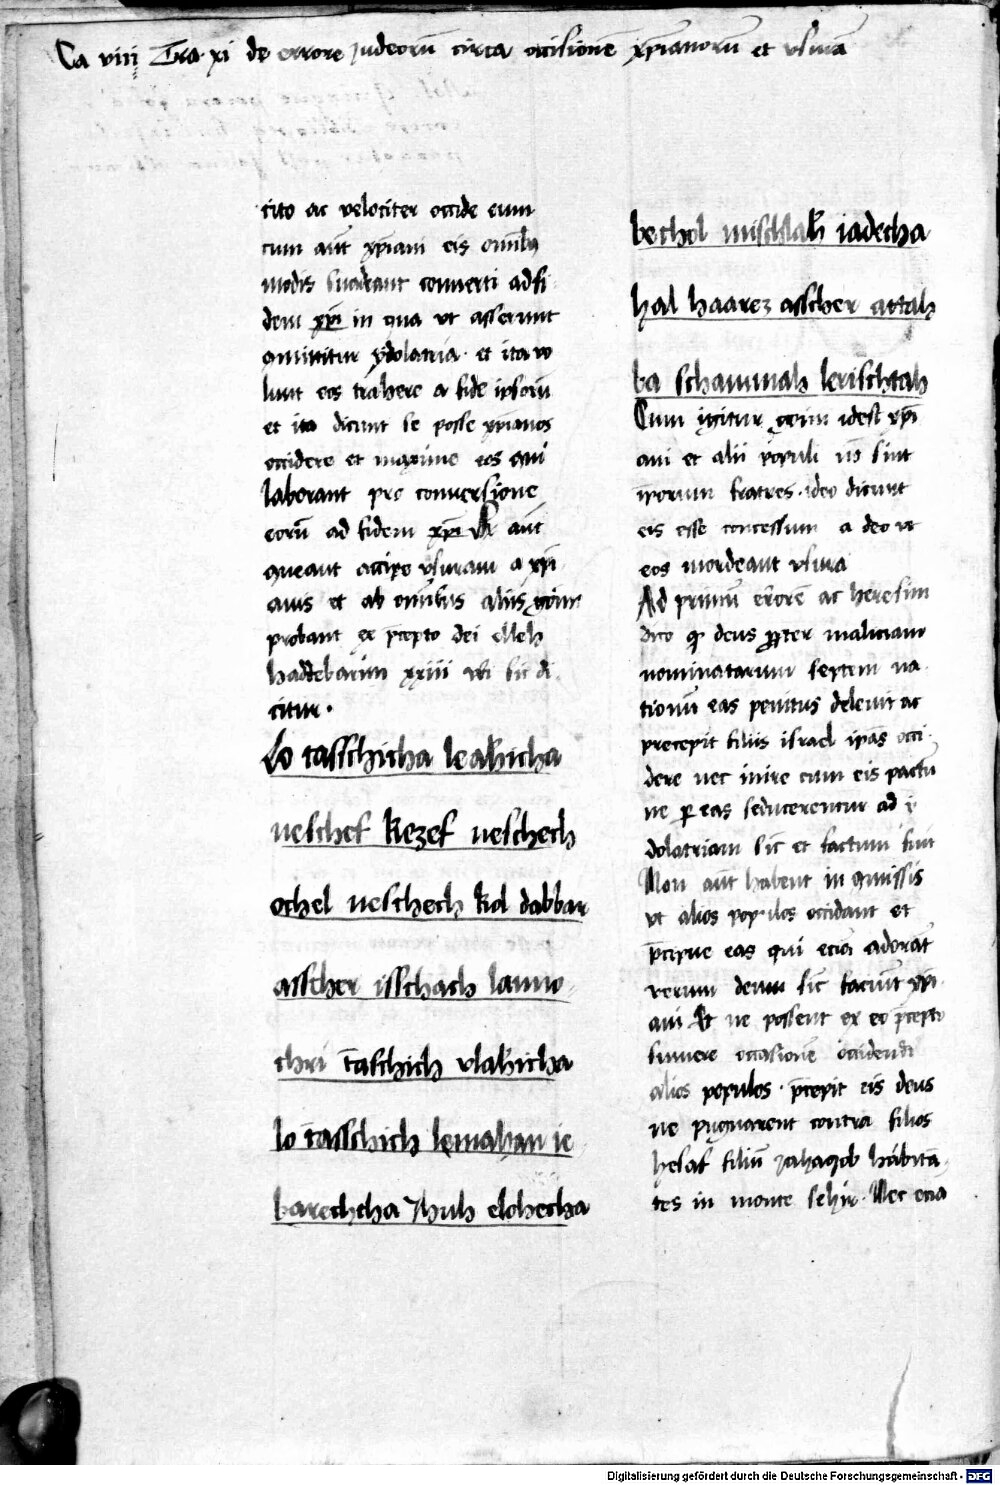 Ca viii Tra xi de errore judeorū circa occisionē xp̄ianorū et vsurā
cito ac velociter occide eum
cum aūt xp̄iani eis omībꝫ
modis suadeant conuerti ad fi
dem xp̄i in qua vt asserunt
amittitur ydolatria · et ita vo
lunt eos trahere a fide ipsorū
et ita dicunt se posse xp̄ianos
occidere et maxime eos qui
laborant pro conuersione
eorū ad fidem xp̄i Vt aūt
queant accipe vsuram a xp̄i
anis et ab omībus aliis goim
probant ex p̄cepto dei elleh
haddebarim xxiii vbi sic di
citur ·
Lo tasschicha leahicha
neschef kezef neschech
ochel neschech kol dabbar
asscher isschach lanno
chri taschich vlahicha
lo tasschich lemahan ie
barechcha Jhuh elohecha
bechol mischlah iadecha
hal haarez asscher attah
ba schammah lerischtah
Cum igitur goim idest xp̄i
ani et alii populi nō sint
ip̄orum fratres · ideo dicunt
eis esse concessum a deo vt
eos mordeant vsura
Ad primū errorē ac heresim
dico qꝫ deus ꝓpter maliciam
nominatarum septem na
tionū eas penitus deleuit ac
precepit filiis israel ip̄as occi
dere nec inire cum eis pactū
ne ꝑ eas seducerentur ad i
dolatriam sic et factum fuit
Non aūt habent in commissis
vt alios populos occidant et
p̄cipue eas qui eciā adorāt
verum deum sic faciūt xp̄i
ani Et ne possent ex eo p̄cepto
sumere occasionē occidendi
alios populos · p̄cepit eis deus
ne pugnarent contra filios
hesaf filiū Jahaqob habitā
tes in monte sehir · Nec eciā
Digitalisierung gefördert durch die Deutsche Forschungsgemeinschaft - DFG